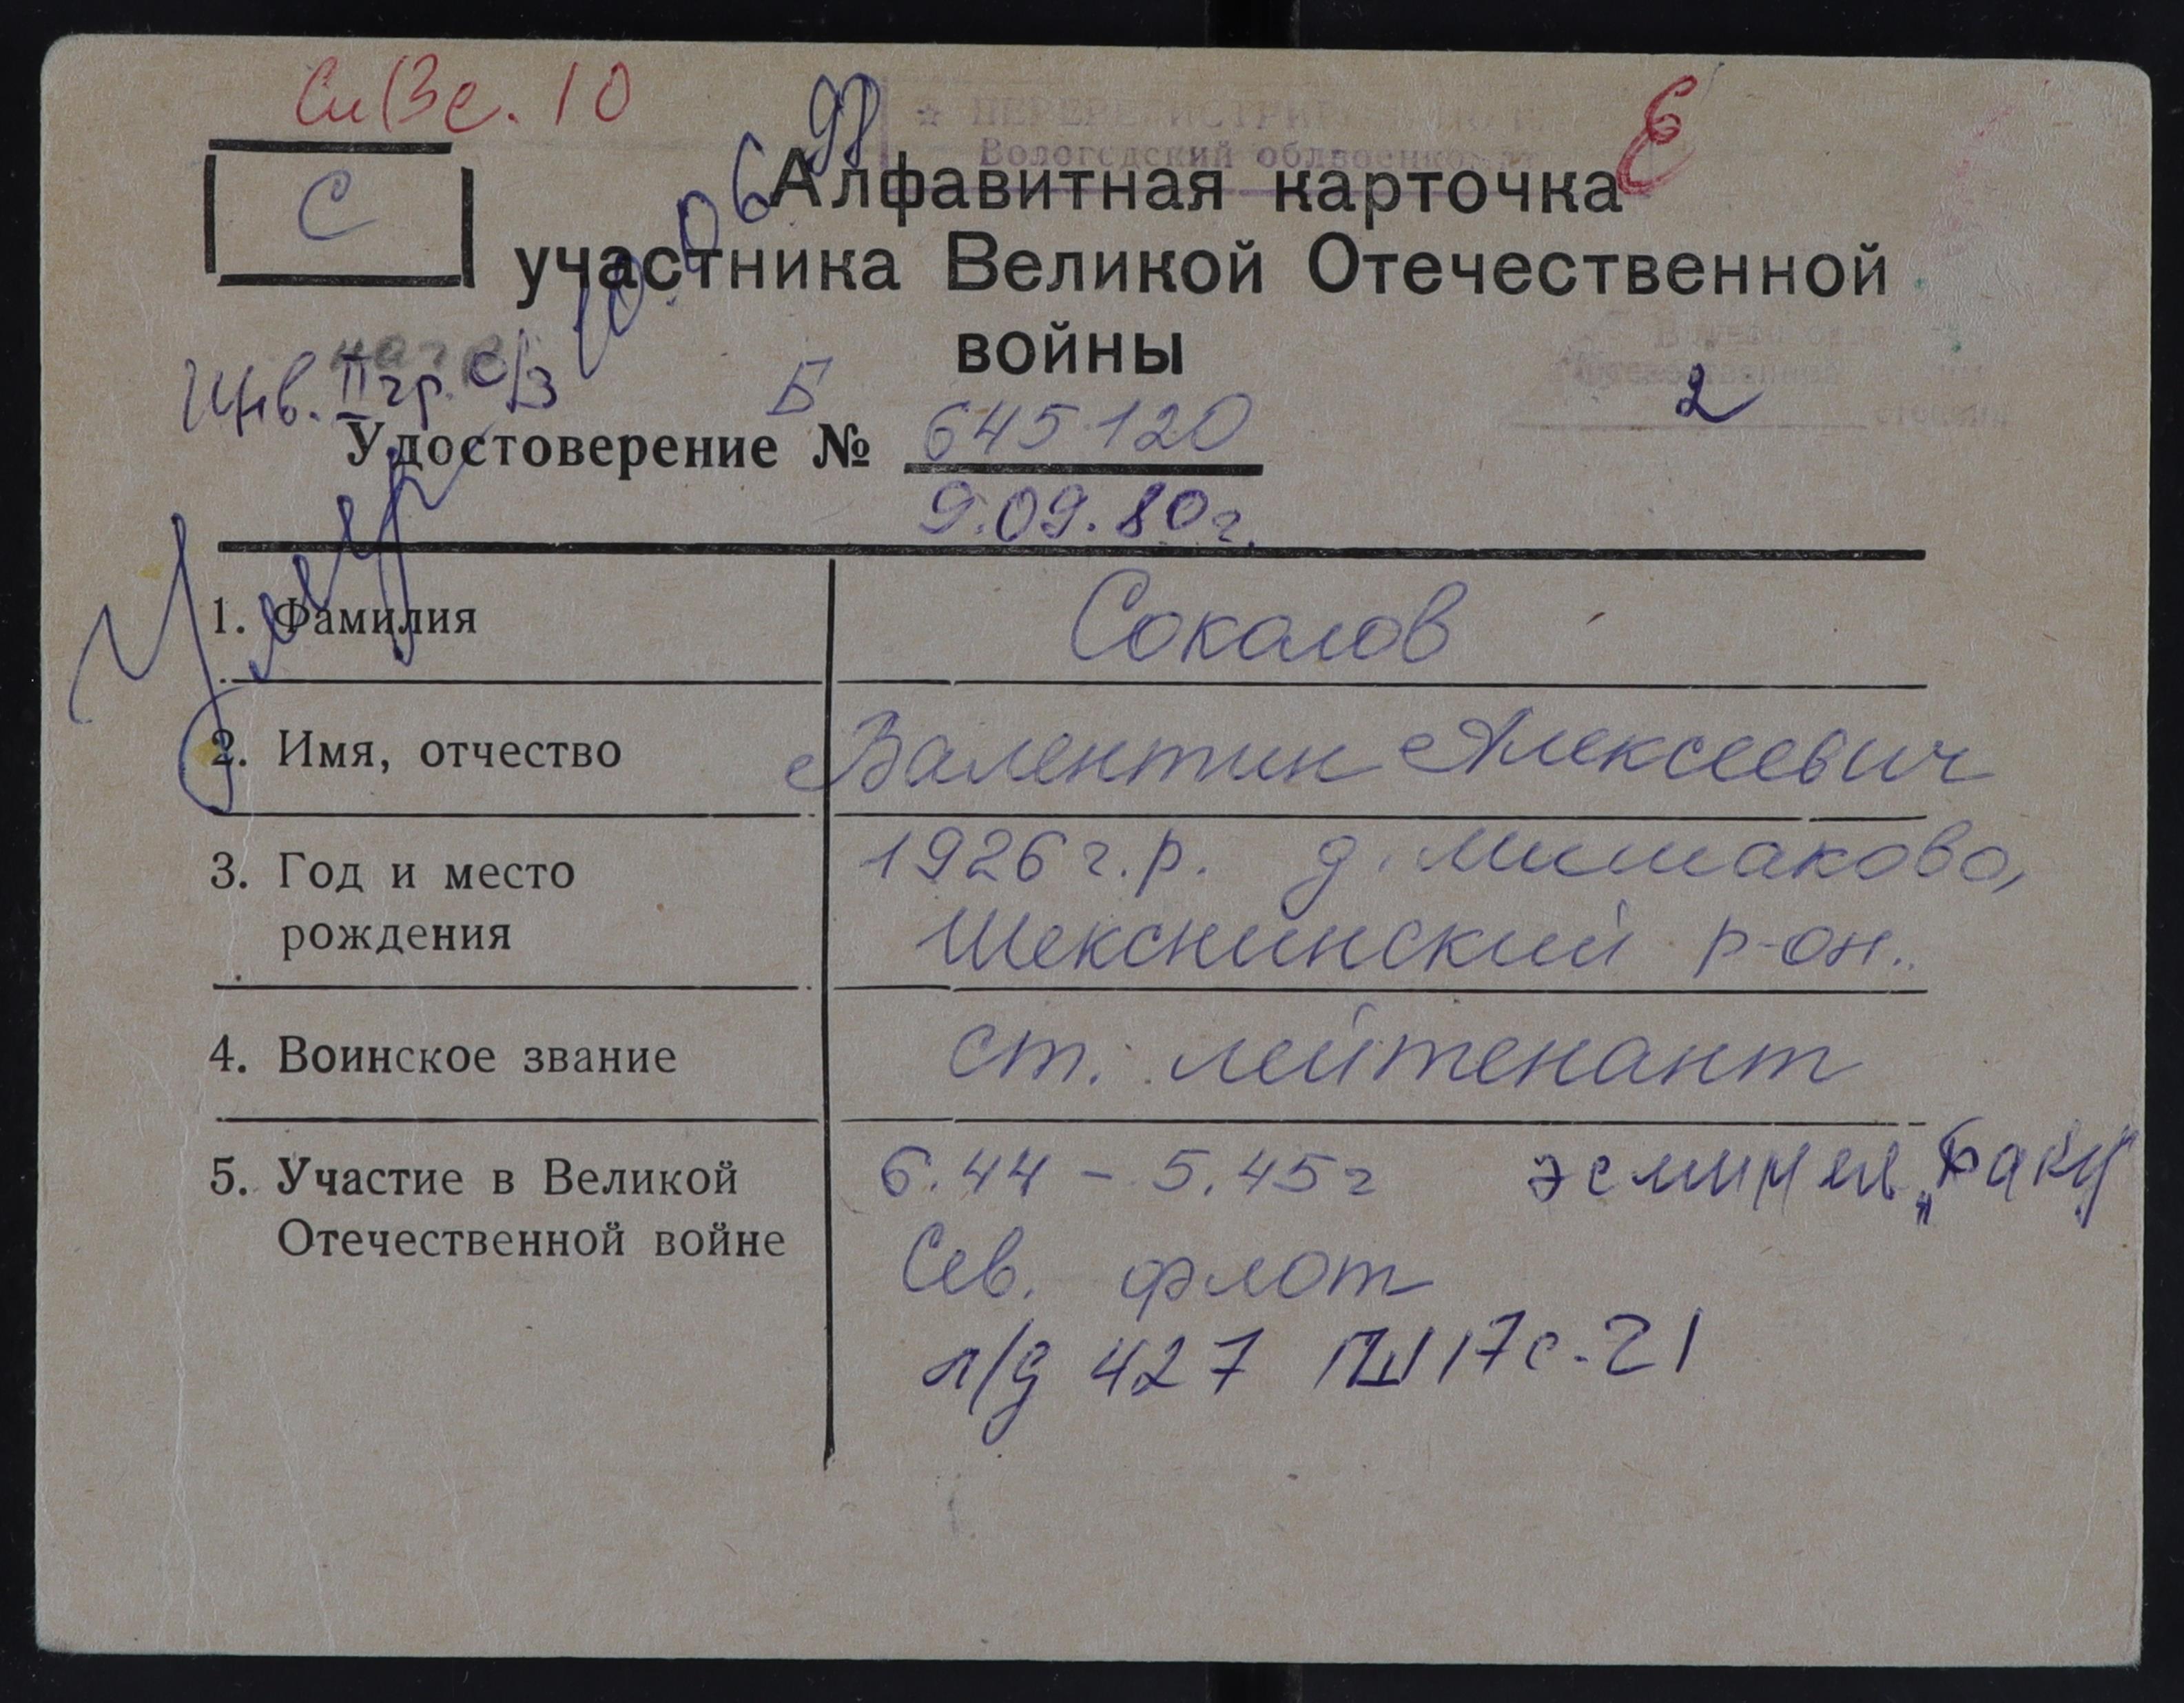 СиВс. 10
98
Е
ПЕРЕРЕГИСТРИРОВАНО
Вологодский облвоенкомат
С
Алфавитная карточка
участника Великой Отечественной
войны
10.06
Инв. II гр. с/з
Б
2
Удостоверение № 645120
9.09.80г.
Умер
1. Фамилия Соколов
2. Имя, отчество Валентин Алексеевич
3. Год и место 1926 г.р. д. Мишаково,
рождения Шекснинский р-он.
4. Воинское звание ст. лейтенант
5. Участие в Великой 6.44 – 5.45г эсминец „Баку"
Отечественной войне Сев. флот
л/д 427 ПШ 17с-21